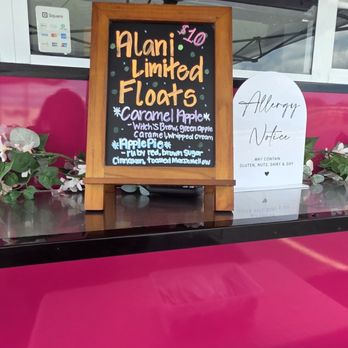 Square
Alani $10
Limited
Floats
*Caramel Apple*
- Witch's Brew, green apple
Caramel, Whipped Cream
*Apple Pie*
- ruby red, brown sugar
Cinnamon, toasted Marshmallow
Allergy
Notice
MAY CONTAIN
GLUTEN, NUTS, DAIRY & SOY